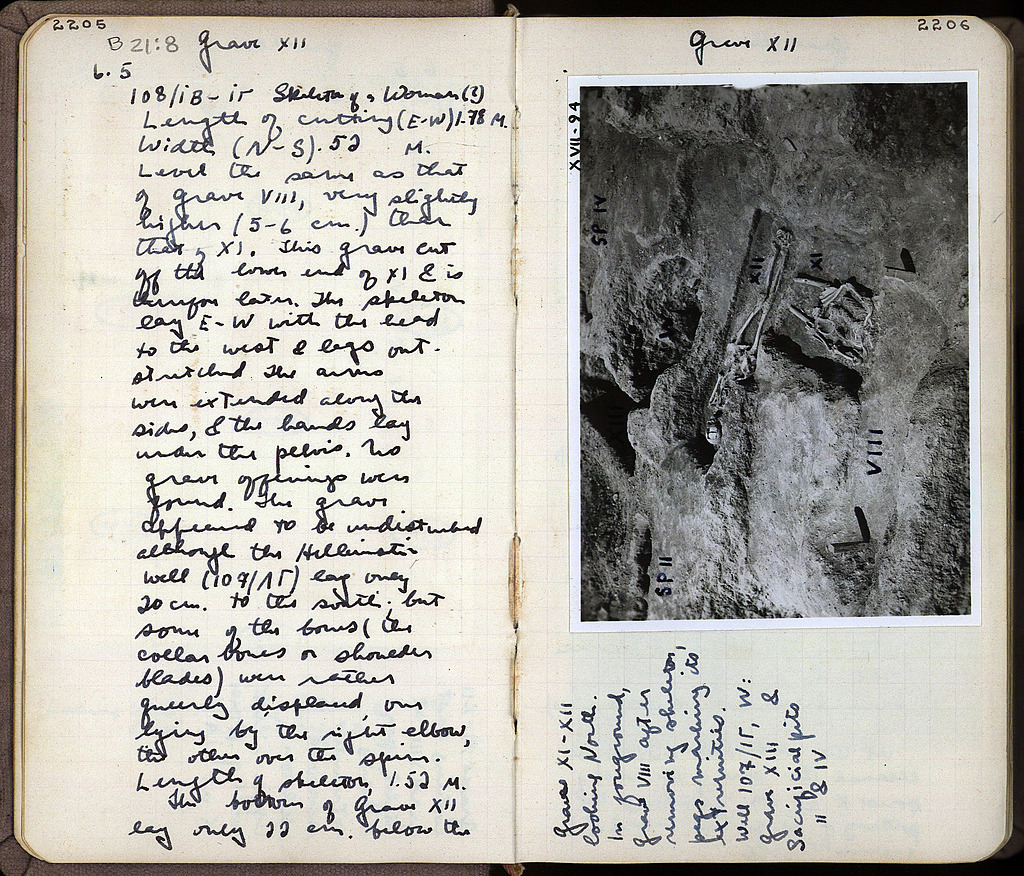 2205
B 21:8 Grave XII
6.5
108/ΙΒ-ΙΓ Skeleton of a Woman(?)
Length of cutting (E-W) 1.78 M.
Width (N-S) .52 M.
Level the same as that
of grave VIII, very slightly
higher (5-6 cm.) than
that of XI. This grave cut
off the lower end of XI & is
later. The skeleton
lay E-W with the head
to the west & legs out-
stretched. The arms
were extended along the
sides, & the hands lay
under the pelvis. No
grave offerings were
found. The grave
appeared to be undisturbed
although the Hellenistic
well (107/ΙΓ) lay only
20 cm. to the south; but
some of the bones (the
collar bones or shoulder
blades) were rather
queerly displaced, one
lying by the right elbow,
the other over the spine.
Length of skeleton, 1.52 M.
The bottom of Grave XII
lay only 22 cm. below the
2206
Grave XII
XVII-94
SP IV
XII
XI
VIII
SP II
Graves XI-XII
looking North.
In foreground,
grave VIII after
removing skeleton,
pegs marking its
extremities.
Well 107/ΙΓ, W:
grave XIII &
Sacrificial pits
II & IV